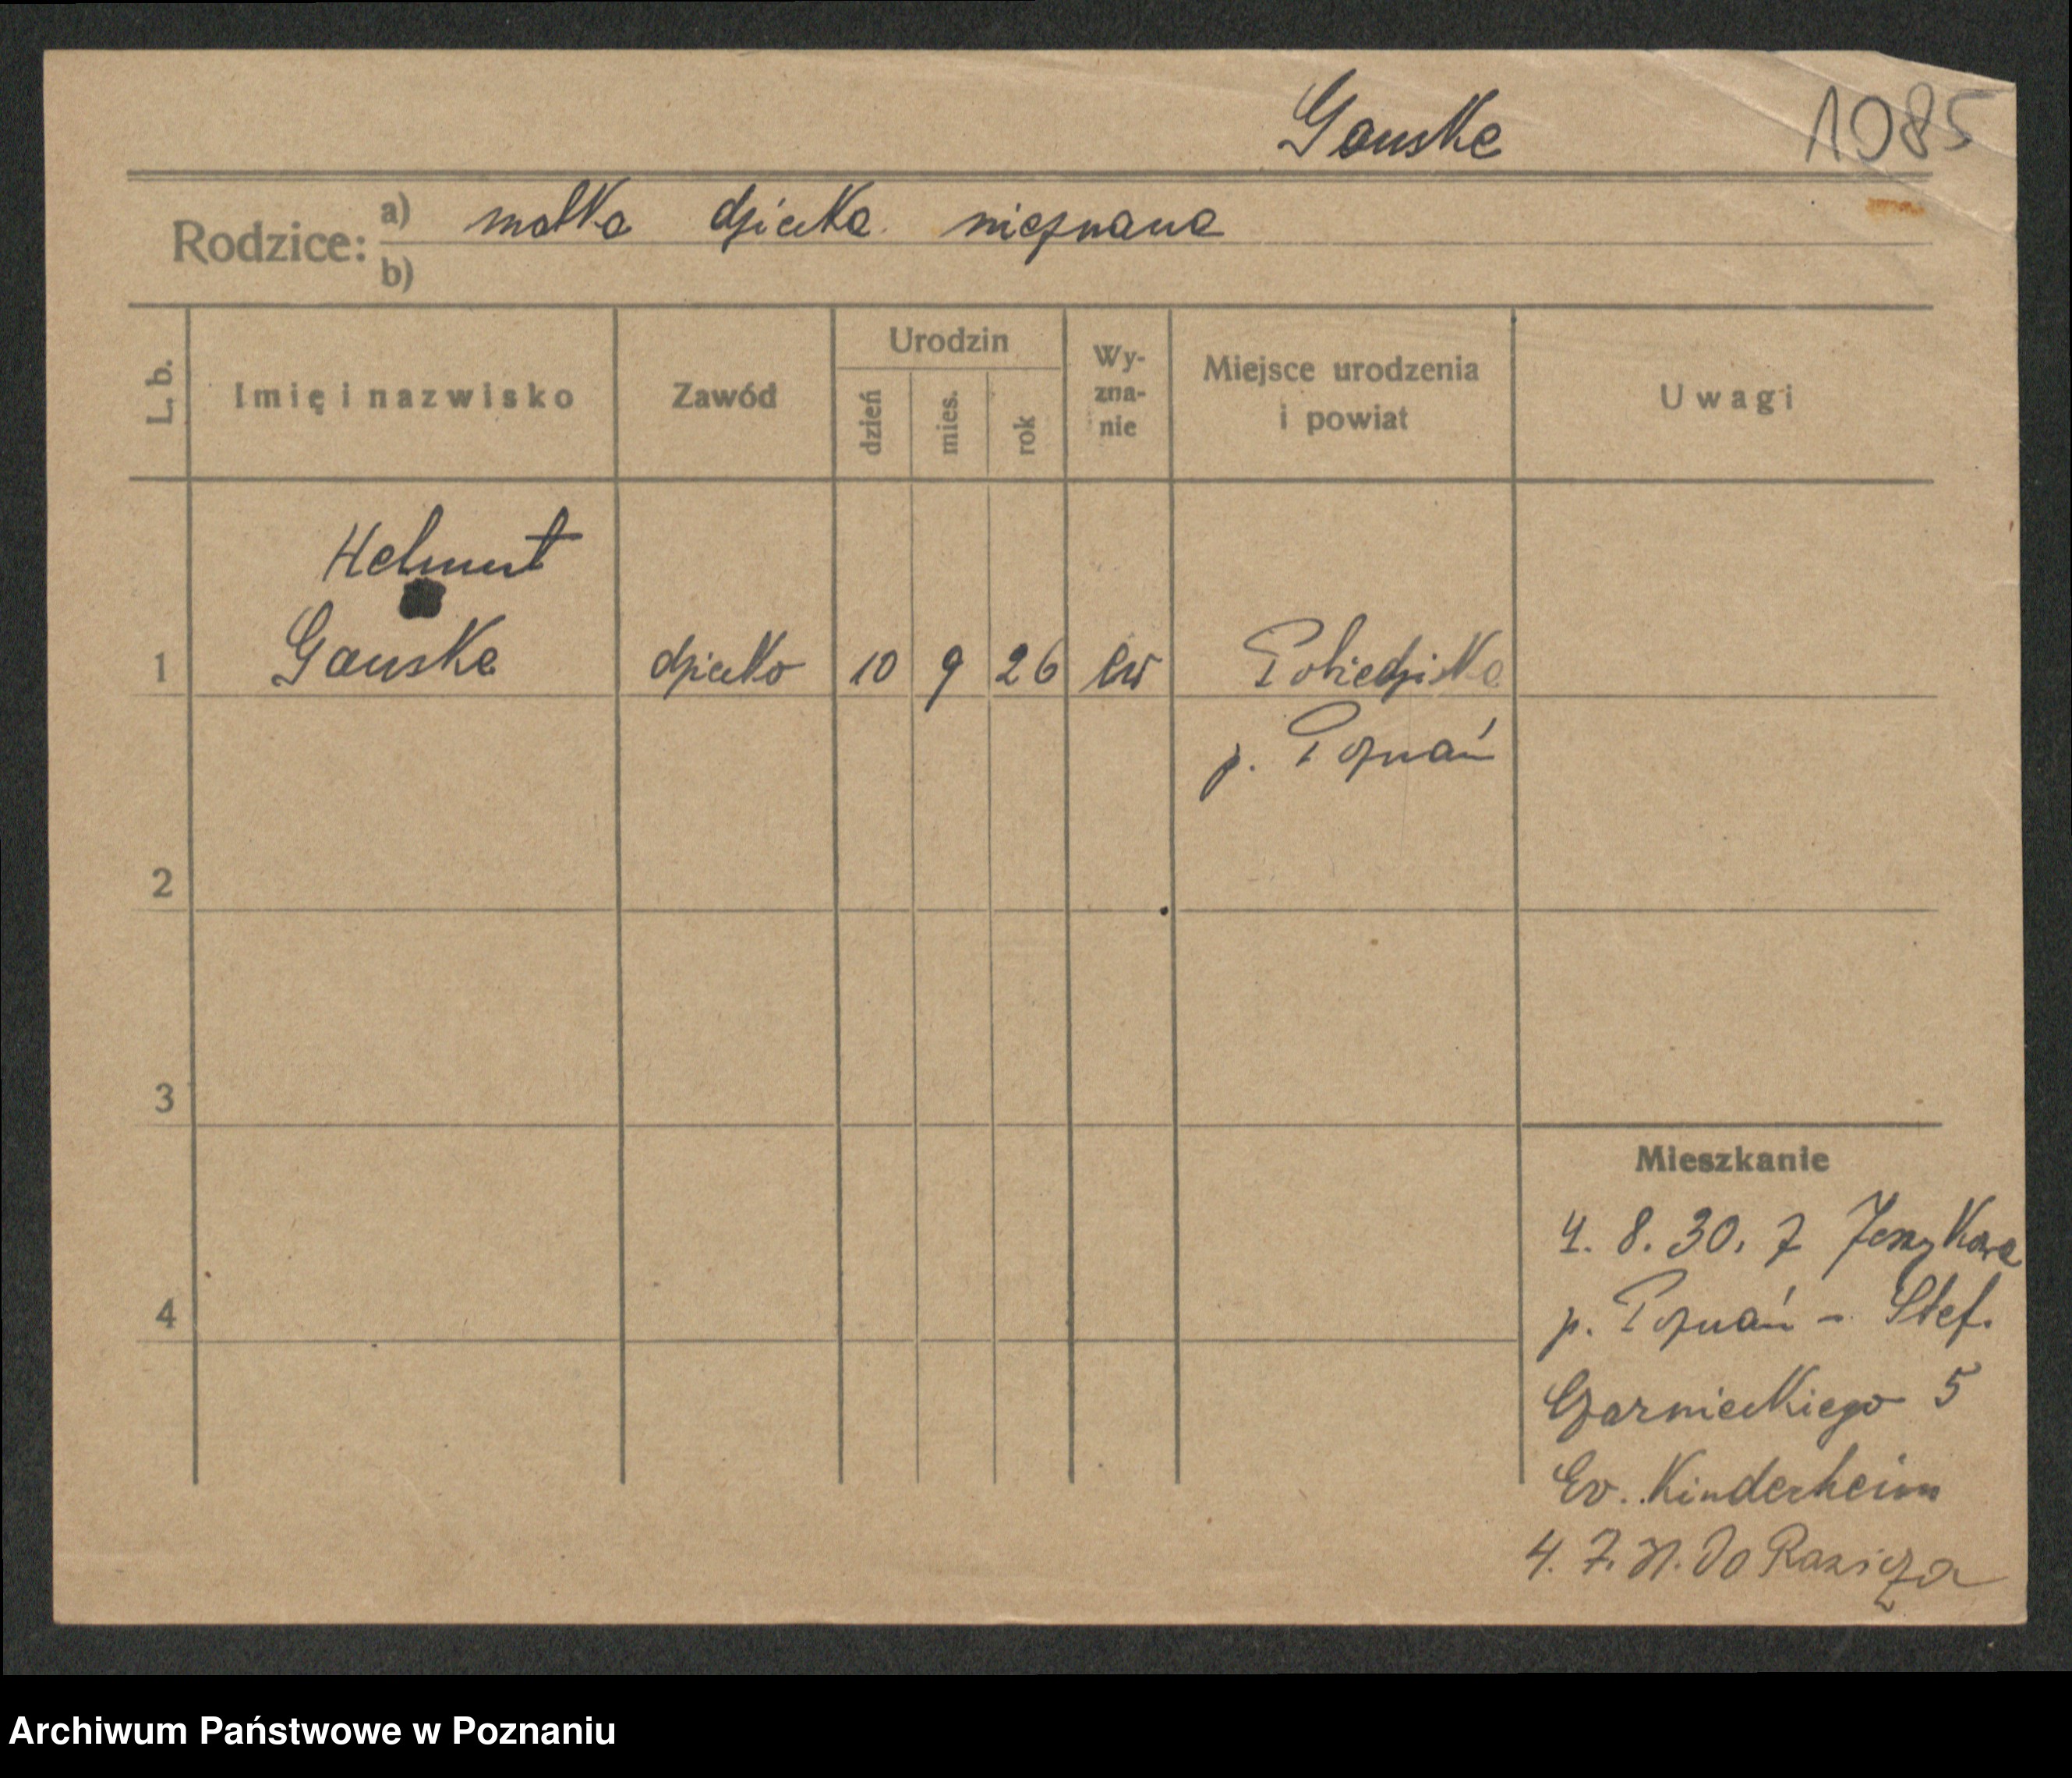 Gauske
1085
Rodzice:
a) matka dziecka nieznana
b)
L. b.
Imię i nazwisko
Zawód
Urodzin
dzień
mies.
rok
Wy-
zna-
nie
Miejsce urodzenia
i powiat
Uwagi
Helmut
1 Gauske dziecko 10 9 26 ew Pobiedziska
p. Poznań
2
3
4
Mieszkanie
4. 8. 30. z Jerzykowa
p. Poznań - Stef.
Czarnieckiego 5
Ev. Kinderheim
4. 7. 31. do